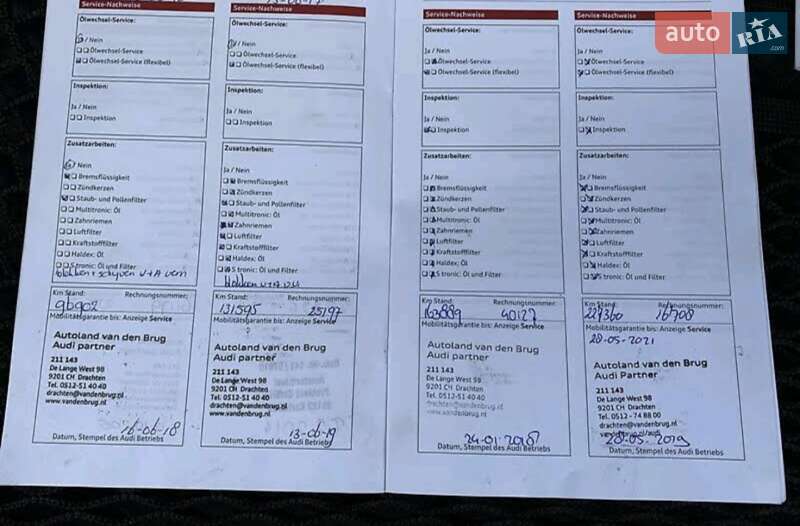 auto RIA .com
Service-Nachweise
Ölwechsel-Service:
Ja / Nein
Ölwechsel-Service
Ölwechsel-Service (flexibel)
Inspektion:
Ja / Nein
Inspektion
Zusatzarbeiten:
Ja / Nein
Bremsflüssigkeit
Zündkerzen
Staub- und Pollenfilter
Multitronic: Öl
Zahnriemen
Luftfilter
Kraftstofffilter
Haldex: Öl
S tronic: Öl und Filter
Km Stand: Rechnungsnummer:
96902
Mobilitätsgarantie bis: Anzeige Service
Autoland van den Brug
Audi partner
211 143
De Lange West 98
9201 CH Drachten
Tel. 0512-51 40 40
drachten@vandenbrug.nl
www.vandenbrug.nl
16-06-18
Datum, Stempel des Audi Betriebs
Service-Nachweise
Ölwechsel-Service:
Ja / Nein
Ölwechsel-Service
Ölwechsel-Service (flexibel)
Inspektion:
Ja / Nein
Inspektion
Zusatzarbeiten:
Ja / Nein
Bremsflüssigkeit
Zündkerzen
Staub- und Pollenfilter
Multitronic: Öl
Zahnriemen
Luftfilter
Kraftstofffilter
Haldex: Öl
S tronic: Öl und Filter
Km Stand: Rechnungsnummer:
131595 25197
Mobilitätsgarantie bis: Anzeige Service
Autoland van den Brug
Audi partner
211 143
De Lange West 98
9201 CH Drachten
Tel. 0512-51 40 40
drachten@vandenbrug.nl
www.vandenbrug.nl
Datum, Stempel des Audi Betriebs
Service-Nachweise
Ölwechsel-Service:
Ja / Nein
Ölwechsel-Service
Ölwechsel-Service (flexibel)
Inspektion:
Ja / Nein
Inspektion
Zusatzarbeiten:
Ja / Nein
Bremsflüssigkeit
Zündkerzen
Staub- und Pollenfilter
Multitronic: Öl
Zahnriemen
Luftfilter
Kraftstofffilter
Haldex: Öl
S tronic: Öl und Filter
Km Stand: Rechnungsnummer:
163889 40127
Mobilitätsgarantie bis: Anzeige Service
Autoland van den Brug
Audi partner
211 143
De Lange West 98
9201 CH Drachten
Tel. 0512-51 40 40
drachten@vandenbrug.nl
www.vandenbrug.nl
24-01-2018
Datum, Stempel des Audi Betriebs
Service-Nachweise
Ölwechsel-Service:
Ja / Nein
Ölwechsel-Service
Ölwechsel-Service (flexibel)
Inspektion:
Ja / Nein
Inspektion
Zusatzarbeiten:
Ja / Nein
Bremsflüssigkeit
Zündkerzen
Staub- und Pollenfilter
Multitronic: Öl
Zahnriemen
Luftfilter
Kraftstofffilter
Haldex: Öl
S tronic: Öl und Filter
Km Stand: Rechnungsnummer:
227360 16708
Mobilitätsgarantie bis: Anzeige Service
28-05-2021
Autoland van den Brug
Audi Partner
211 143
De Lange West 98
9201 CH Drachten
Tel. 0512 - 74 88 00
drachten@vandenbrug.nl
vandenbrug.nl/audi
28-05-2019
Datum, Stempel des Audi Betriebs